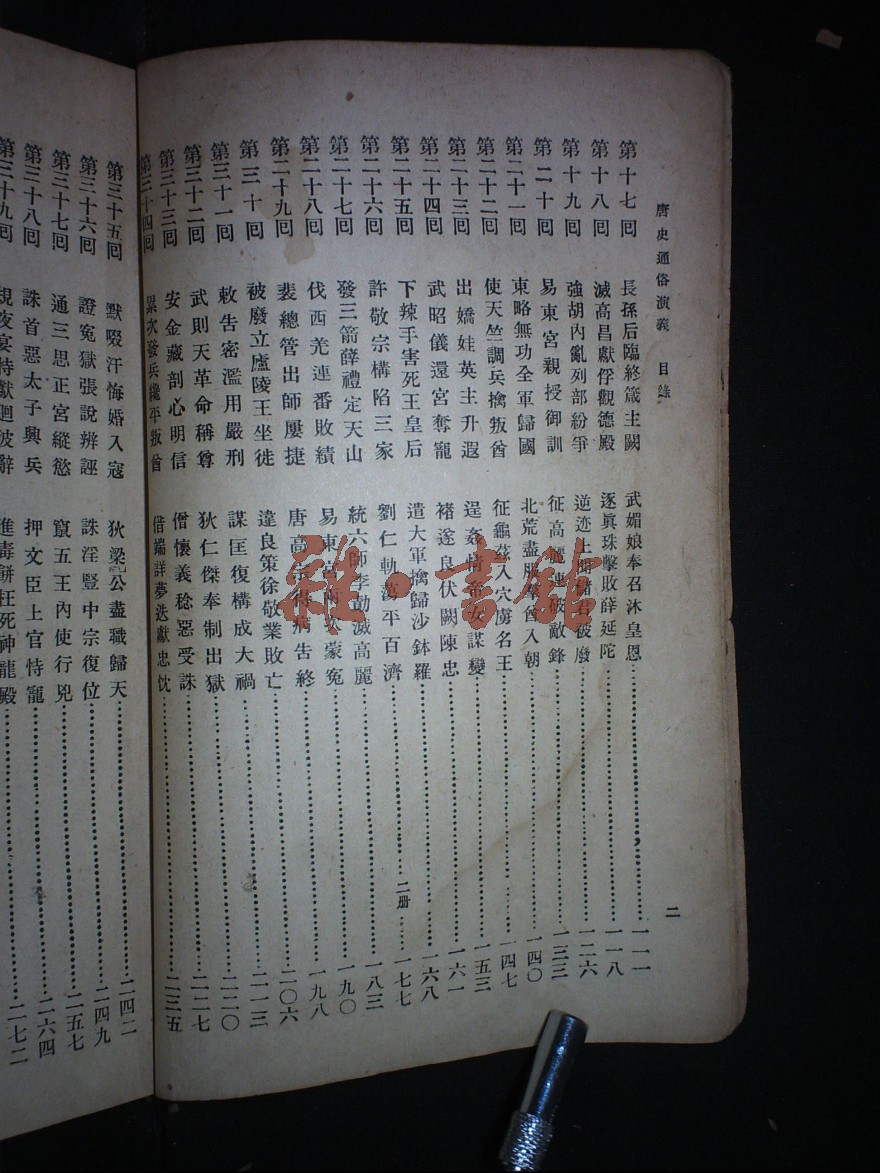 唐史通俗演義 目錄
二
第十七回 長孫后臨終箴主闕 武媚娘奉召沐皇恩 一一一
第十八回 滅高昌獻俘觀德殿 逐眞珠擊敗薛延陀 一一八
第十九回 強胡內亂列部紛爭 逆迹上聞儲君被廢 一二六
第二十回 易東宮親授御訓 征高麗連破敵鋒 一三三
第二十一回 東略無功全軍歸國 北荒盡服羣酋入朝 一四〇
第二十二回 使天竺調兵擒叛酋 征龜茲入穴虜名王 一四七
第二十三回 出嬌娃英主升遐 逞姦情帝女謀變 一五三
第二十四回 武昭儀還宮奪寵 褚遂良伏闕陳忠 一六一
第二十五回 下辣手害死王皇后 遣大軍擒歸沙鉢羅 一六八
第二十六回 許敬宗構陷三家 劉仁軌蕩平百濟 二册 一七七
第二十七回 發三箭薛禮定天山 統六師李勣滅高麗 一八三
第二十八回 伐西羌連番敗績 易東宮兩次蒙冤 一九〇
第二十九回 裴總管出師屢捷 唐高宗得病告終 一九八
第三十回 被廢立廬陵王坐徙 違良策徐敬業敗亡 二〇六
第三十一回 敕告密濫用嚴刑 謀匡復構成大禍 二一三
第三十二回 武則天革命稱尊 狄仁傑奉制出獄 二二〇
第三十三回 安金藏剖心明信 僧懷義稔惡受誅 二二七
第三十四回 累次發兵纔平叛酋 借端詳夢迭獻忠忱 二三五
第三十五回 默啜汗悔婚入寇 狄梁公盡職歸天 二四二
第三十六回 證冤獄張說辨誣 誅淫豎中宗復位 二四九
第三十七回 通三思正宮縱慾 竄五王內使行兇 二五七
第三十八回 誅首惡太子興兵 押文臣上官恃寵 二六四
第三十九回 規夜宴特獻迴波辭 進毒餅枉死神龍殿 二七二
雜·書館